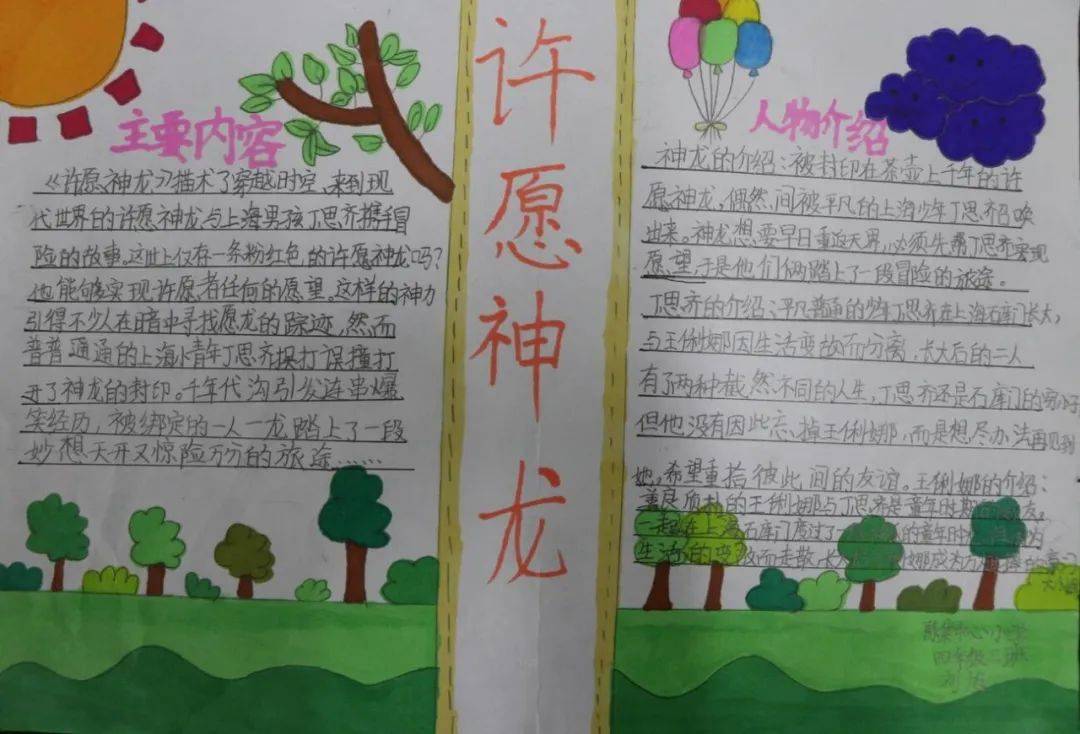 主要内容
《许愿神龙》描术了穿越时空、来到现
代世界的许愿神龙与上海男孩丁思齐携手冒
险的故事。这世上仅存一条粉红色的许愿神龙吗?
他能够实现许愿者任何的愿望。这样的神力
引得不少人在暗中寻找愿龙的踪迹,然而
普普通通的上海青年丁思齐误打误撞打
开了神龙的封印。千年代沟引发连串爆
笑经历,被绑定的一人一龙踏上了一段
妙想天开又惊险万分的旅途……
许愿神龙
人物介绍
神龙的介绍:被封印在茶壶上千年的许
愿神龙,偶然间被平凡的上海少年丁思齐召唤
出来。神龙想要早日重返天界,必须先帮丁思齐实现
愿望,于是他们俩踏上了一段冒险的旅途。
丁思齐的介绍:平凡普通的少年丁思齐在上海石库门长大,
与王俐娜因生活变故而分离,长大后的二人
有了两种截然不同的人生,丁思齐还是石库门的穷小子
但他没有因此忘掉王俐娜,而是想尽办法再见到
她,希望重拾彼此间的友谊。王俐娜的介绍:
善良质朴的王俐娜与丁思齐是童年时期的朋友。
一起在上海石库门度过了的童年时
生活的变故而走散,长大娜成为万
中心小学
四年级二班
刘